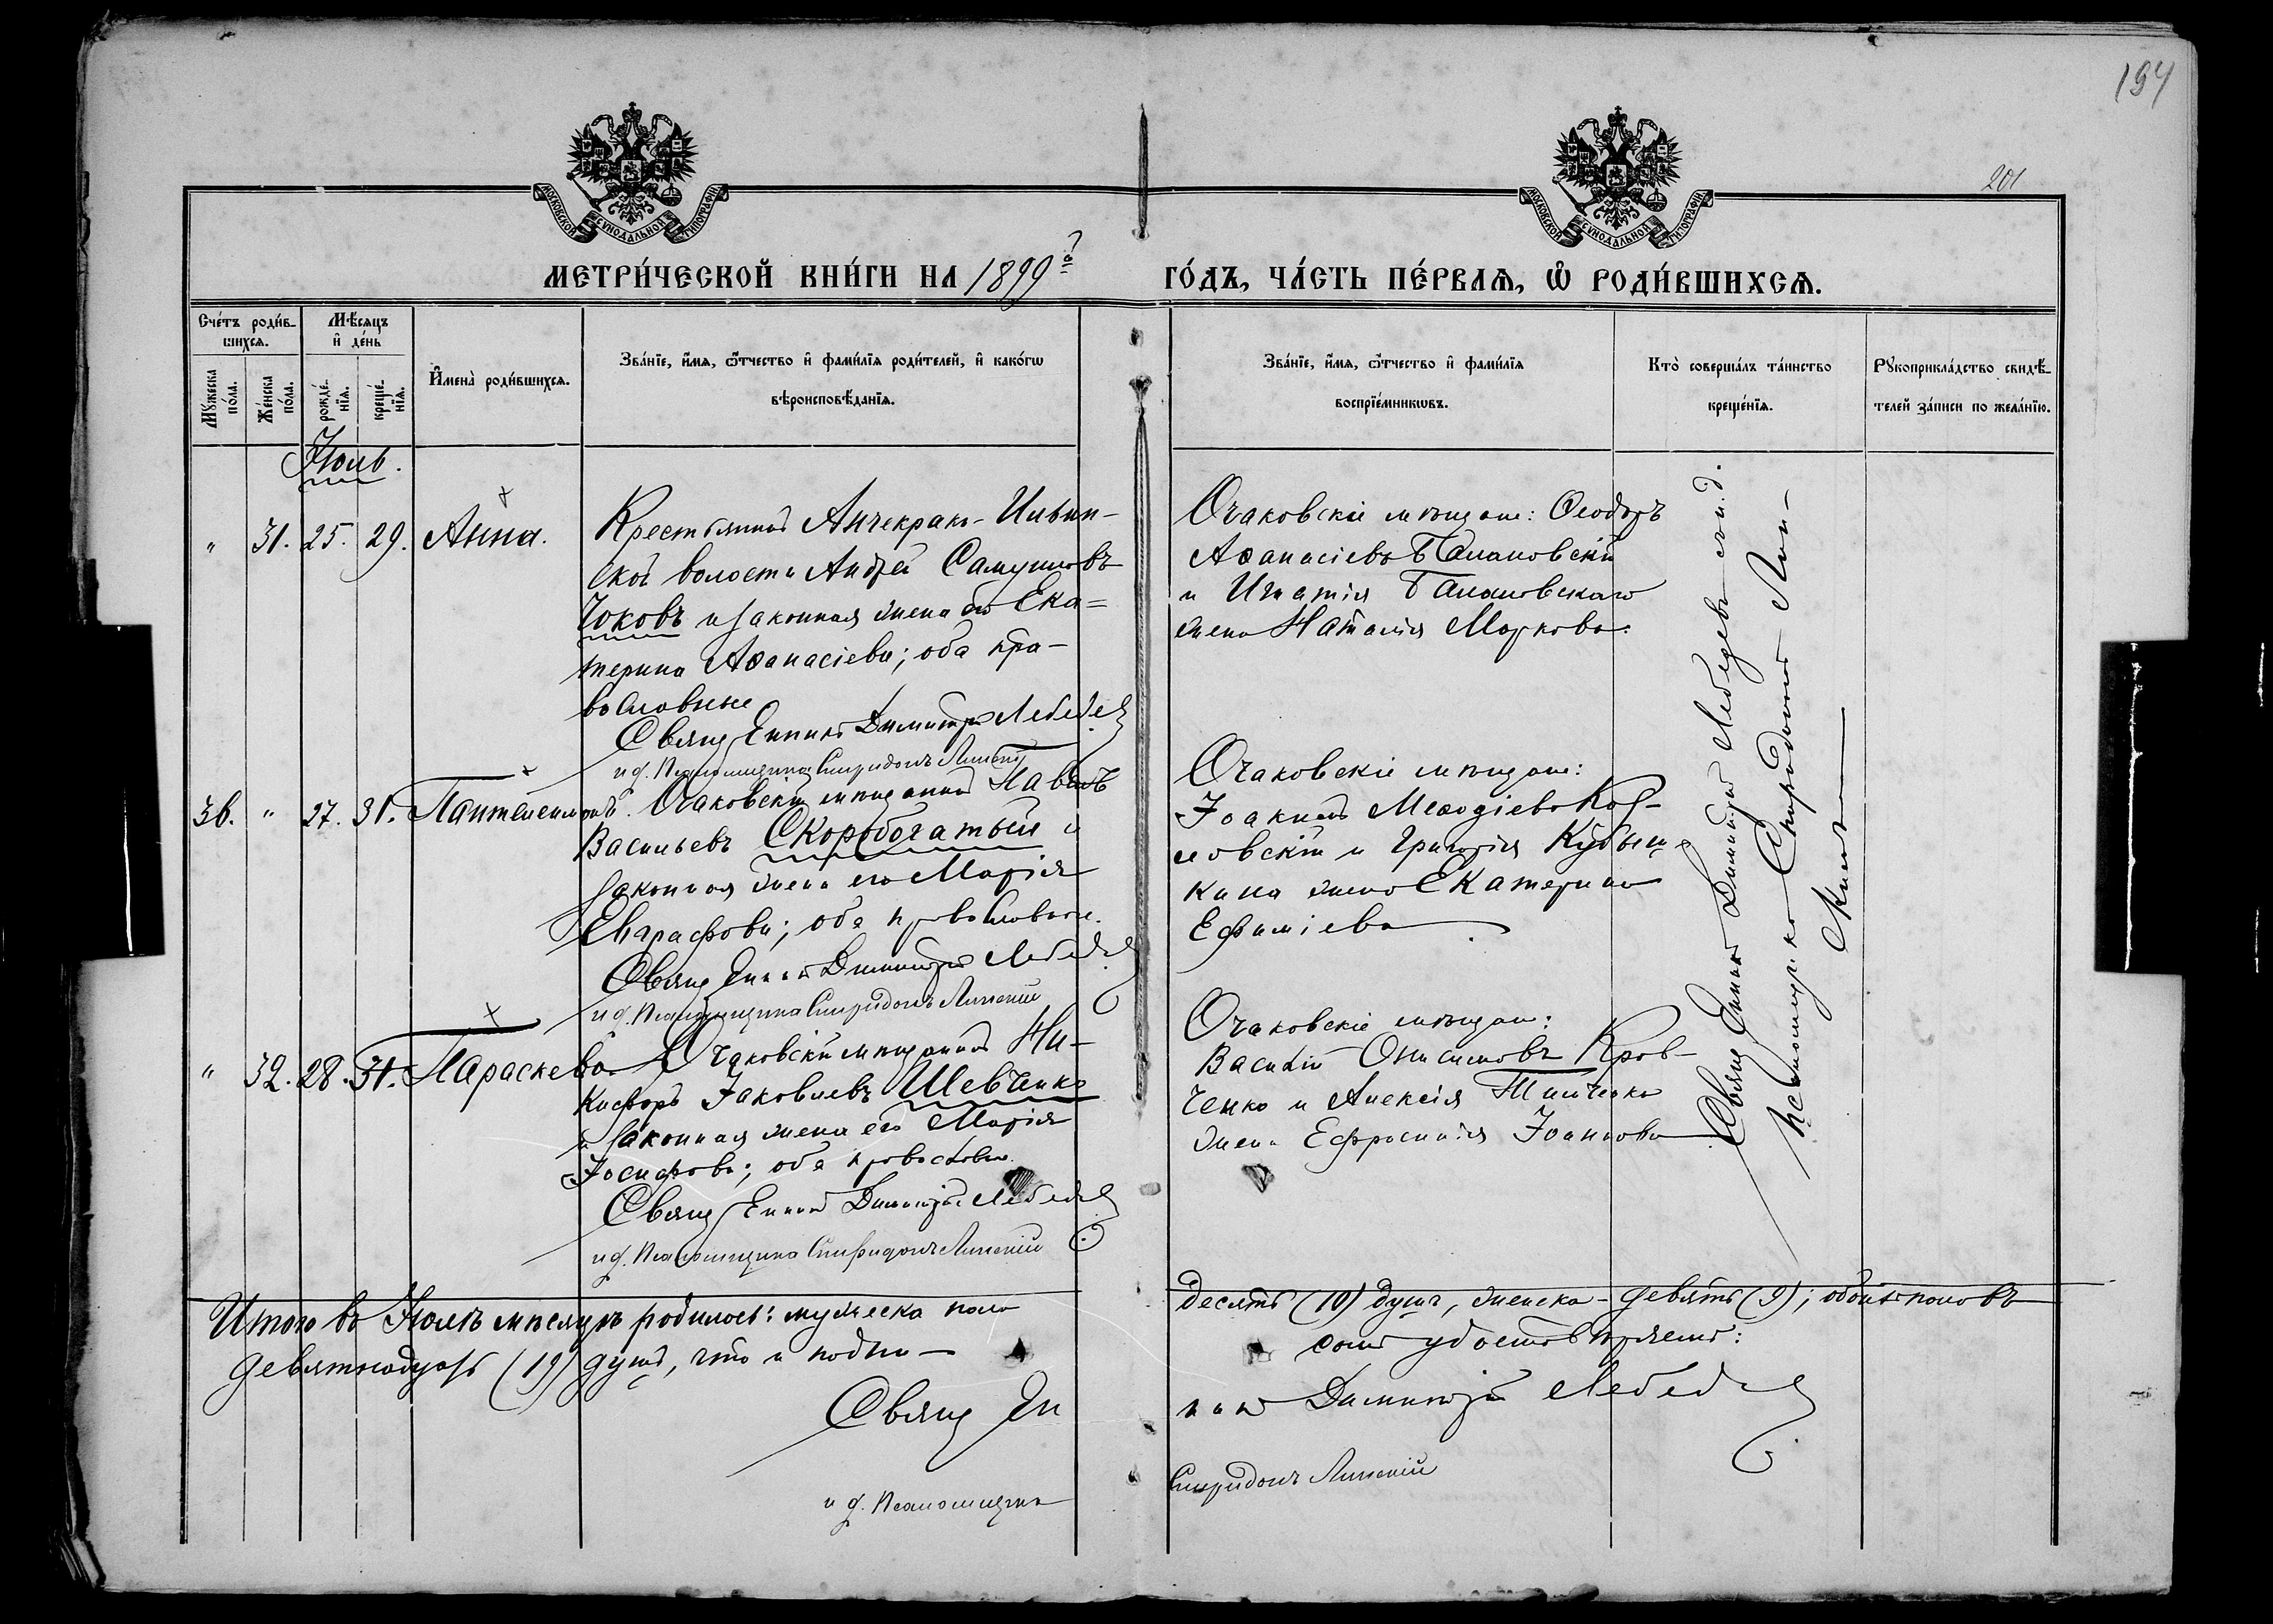 194
201
МОСКОВСКОЙ СѴНОДАЛЬНОЙ ТИПОГРАФІИ
МОСКОВСКОЙ СѴНОДАЛЬНОЙ ТИПОГРАФІИ
МЕТРИ́ЧЕСКОЙ КНИ́ГИ НА 1899й
ГО́ДЪ, ЧА́СТЬ ПЕ́РВАѦ, Ѡ҆ РОДИ́ВШИХСѦ.
Сче́тъ роди́в-
шихсѧ.
Мѣ́сяцъ
и҆ де́нь
Мꙋ́жеска
по́ла.
Же́нска
по́ла.
рожде́-
нїѧ.
креще́-
нїѧ.
И҆мена̀ роди́вшихсѧ.
Зва́нїе, и҆́мѧ, ѻ҆́тчество и҆ фами́лїѧ роди́телей, и҆ како́гѡ
вѣроисповѣ́данїѧ.
Зва́нїе, и҆́мѧ, ѻ҆́тчество и҆ фами́лїѧ
воспрїе́мникѡвъ.
Кто̀ соверша́лъ та́инство
креще́нїѧ.
Рꙋкоприкла́дство свидѣ́-
телей за́писи по жела́нїю.
Іюль.
" 31. 25. 29. Анна.
Крестьянинъ Анчекрако-Ильин-
ской волости Андрей Самуиловъ
Чоковъ и законная жена его Ека=
терина Аѳанасіева; оба пра-
вославные
Священникъ Димитрій Лебедев
и д. Псаломщика Спиридонъ Липскій
Очаковскіе мѣщане: Ѳеодоръ
Аѳанасіевъ Балановскій
и Игнатія Балановскаго
жена Наталія Маркова.
36. " 27. 31. Пантелеимонъ.
Очаковскій мѣщанинъ Павелъ
Васильевъ Скоробогатый и
законная жена его Марія
Евграфова; оба православные.
Священникъ Димитрій Лебедев
и д. Псаломщика Спиридонъ Липскій
Очаковскіе мѣщане:
Іоакимъ Меѳодіевъ Коз-
ловскій и Григорія Кубыш-
кина жена Екатерина
Ефиміева
" 32. 28. 31. Параскева
Очаковскій мѣщанинъ Ни-
кифоръ Іаковлевъ Шевченко
и законная жена его Марія
Іосифова; оба православные.
Священникъ Димитрій Лебедев
и д. Псаломщика Спиридонъ Липскій
Очаковскіе мѣщане:
Василій Онисимовъ Крав-
ченко и Алексія
жена Ефросинія Іоаннова
Священникъ Димитрій Лебедевъ съ и. д.
Псаломщика Спиридономъ Лип-
скимъ
Итого въ Іюлѣ мѣсяцѣ родилось: мужеска пола
десять (10) душъ, женска - девять (9); обоихъ половъ
девятнадцать (19) душъ, что и подпи-
сомъ удостовѣряемъ:
Священ
никъ Димитрій Лебедев
и д. Псаломщика
Спиридонъ Липскій